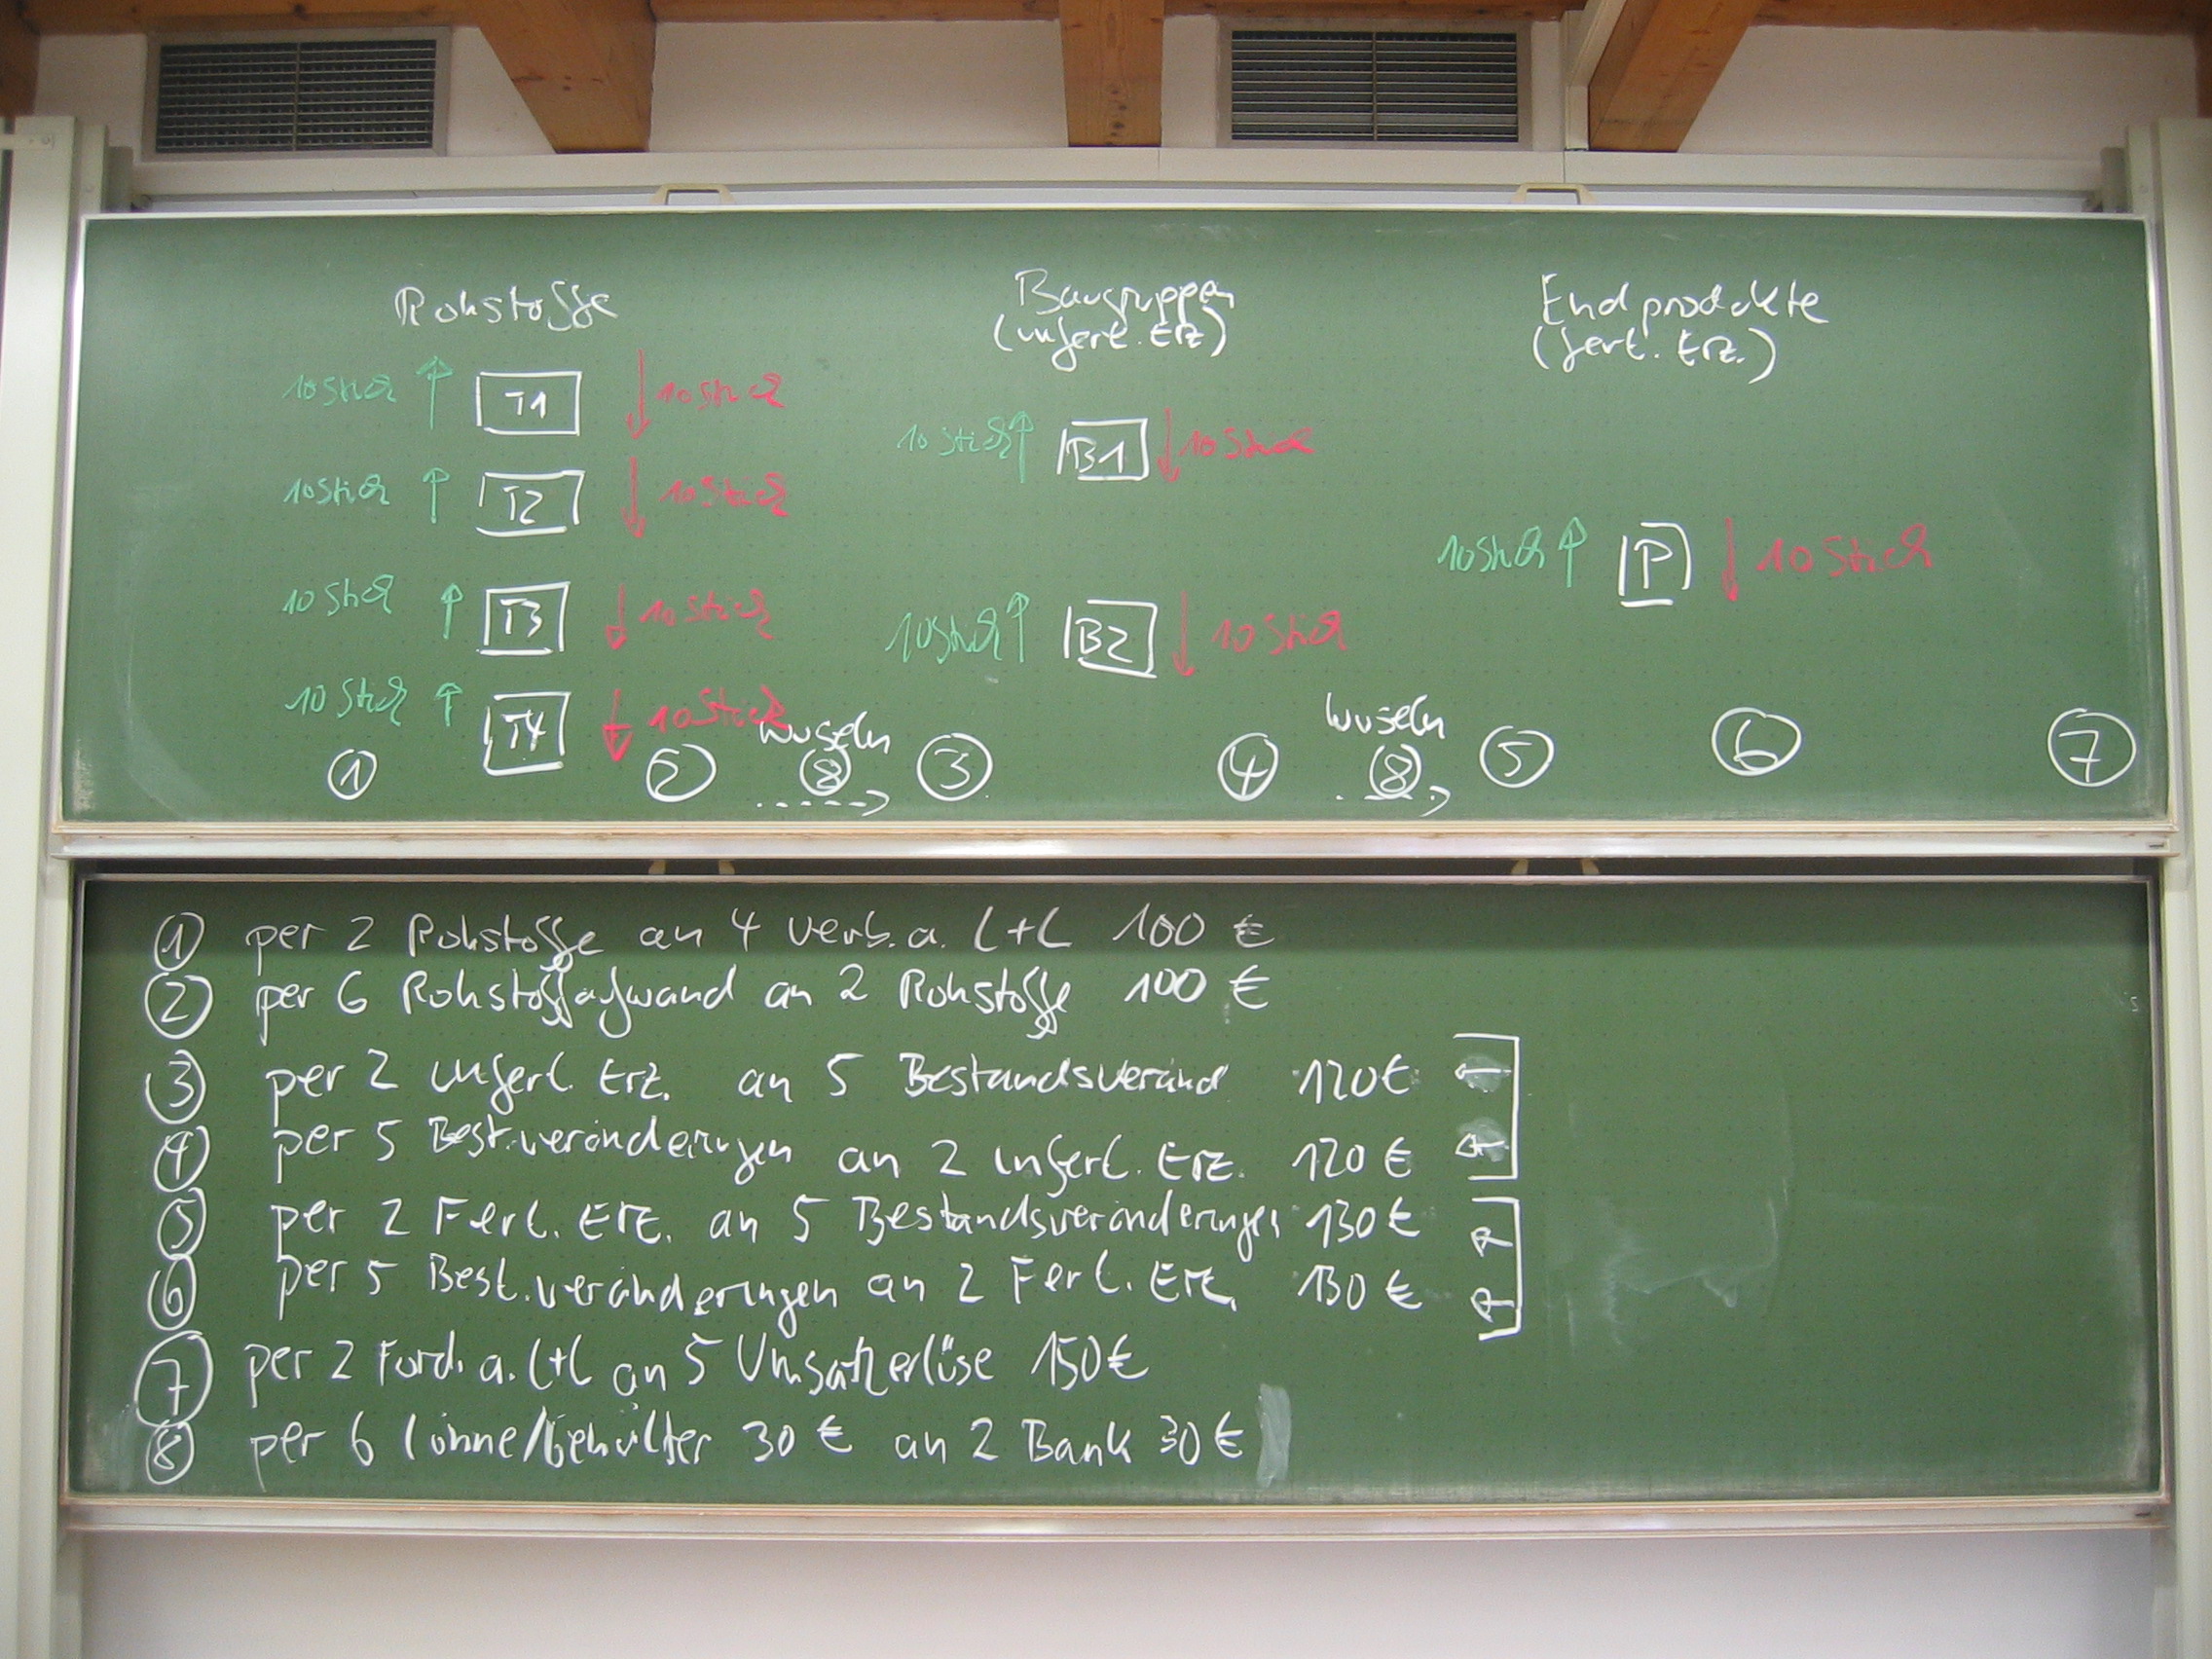 Rohstoffe
Baugruppen
(unfert. Erz)
Endprodukte
(fert. Erz.)
10 Stück ↑ T1 ↓ 10 Stück
10 Stück ↑ B1 ↓ 10 Stück
10 Stück ↑ T2 ↓ 10 Stück
10 Stück ↑ P ↓ 10 Stück
10 Stück ↑ T3 ↓ 10 Stück
10 Stück ↑ B2 ↓ 10 Stück
10 Stück ↑ T4 ↓ 10 Stück
wuseln
wuseln
① ② ⑧ ③ ④ ⑧ ⑤ ⑥ ⑦
① per 2 Rohstoffe an 4 Verb. a. L+L 100 €
② per 6 Rohstoffaufwand an 2 Rohstoffe 100 €
③ per 2 unfert. Erz. an 5 Bestandsveränd 120 €
④ per 5 Best.veränderungen an 2 unfert. Erz. 120 €
⑤ per 2 Fert. Erz. an 5 Bestandsveränderungen 130 €
⑥ per 5 Best.veränderungen an 2 Fert. Erz. 130 €
⑦ per 2 Ford. a. L+L an 5 Umsatzerlöse 150 €
⑧ per 6 Löhne/Gehälter 30 € an 2 Bank 30 €